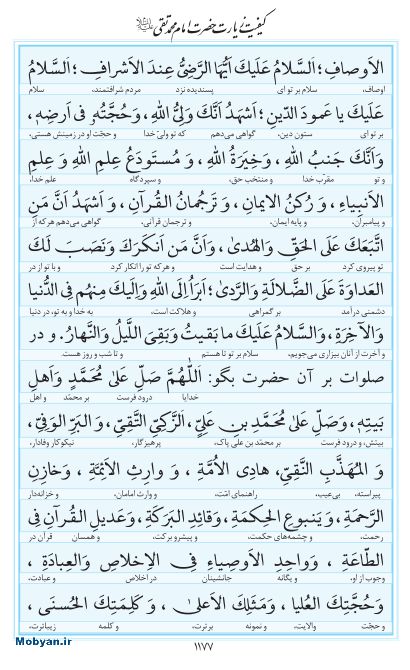 کیفیت زیارت حضرت امام محمد تقی علیه السلام
الاَوصافِ؛ اَلسَّلامُ عَلَیكَ اَیُّهَا الرَّضِیُّ عِندَ الاَشرافِ؛ اَلسَّلامُ
اوصاف، سلام بر تو ای پسندیده نزد مردم شرافتمند، سلام
عَلَیكَ یا عَمودَ الدّینِ؛ اَشهَدُ اَنَّكَ وَلِیُّ اللهِ، وَحُجَّتُهُ فی اَرضِهِ،
بر تو ای ستون دین، گواهی می‌دهم که تو ولیّ خدا و حجّت او در زمینش هستی،
وَاَنَّكَ جَنبُ اللهِ، وَخِیَرَةُ اللهِ، وَ مُستَودَعُ عِلمِ اللهِ وَ عِلمِ
و تو مقرّب خدا و منتخب حق، و سپردگاه علم خدا،
الاَنبِیاءِ، وَ رُکنُ الایمانِ، وَ تَرجُمانُ القُرآنِ، وَ اَشهَدُ اَنَّ مَنِ
و پیامبران، و پایه ایمان، و ترجمان قرآنی، گواهی می‌دهم هرکه از
اتَّبَعَكَ عَلَی الحَقِّ وَالهُدیٰ، وَاَنَّ مَن اَنکَرَكَ وَنَصَبَ لَكَ
تو پیروی کرد بر حق و هدایت است و هرکه تو را انکار کرد و با تو از در
العَداوَةَ عَلَی الضَّلالَةِ وَالرَّدیٰ؛ اَبرَأُ اِلَی اللهِ وَاِلَیكَ مِنهُم فِی الدُّنیا
دشمنی درآمد بر گمراهی و هلاکت است، به خدا و به تو، در دنیا
وَالآخِرَةِ، وَالسَّلامُ عَلَیكَ ما بَقیتُ وَبَقِیَ اللَّیلُ وَالنَّهارُ. و در
و آخرت از آنان بیزاری می‌جویم، سلام بر تو تا هستم و تا شب و روز هست.
صلوات بر آن حضرت بگو: اَللّٰهُمَّ صَلِّ عَلیٰ مُحَمَّدٍ وَاَهلِ
خدایا درود فرست بر محمّد و اهل
بَیتِهِ، وَصَلِّ عَلیٰ مُحَمَّدِ بنِ عَلِیٍّ، الزَّکِیِّ التَّقِیِّ، وَ البَرِّ الوَفِیِّ،
بیتش، و درود فرست بر محمّد بن علی پاک، پرهیزگار، نیکوکار وفادار،
وَ المُهَذَّبِ النَّقِیِّ، هادِی الاُمَّةِ، وَ وارِثِ الاَئِمَّةِ، وَخازِنِ
پیراسته، بی‌عیب، راهنمای امّت، و وارث امامان، و خزانه‌دار
الرَّحمَةِ، وَیَنبوعِ الحِکمَةِ، وَقائِدِ البَرَکَةِ، وَعَدیلِ القُرآنِ فِی
رحمت، و چشمه‌های حکمت، و پیشرو برکت، و همسان قرآن در
الطّاعَةِ، وَواحِدِ الاَوصِیاءِ فِی الاِخلاصِ وَالعِبادَةِ،
وجوب از او، و یگانه جانشینان در اخلاص و عبادت،
وَحُجَّتِكَ العُلیا، وَمَثَلِكَ الاَعلیٰ، وَ کَلِمَتِكَ الحُسنیٰ،
و حجّت والایت، و نمونه برترت، و کلمه زیباترت،
۱۱۷۷
Mobyan.ir